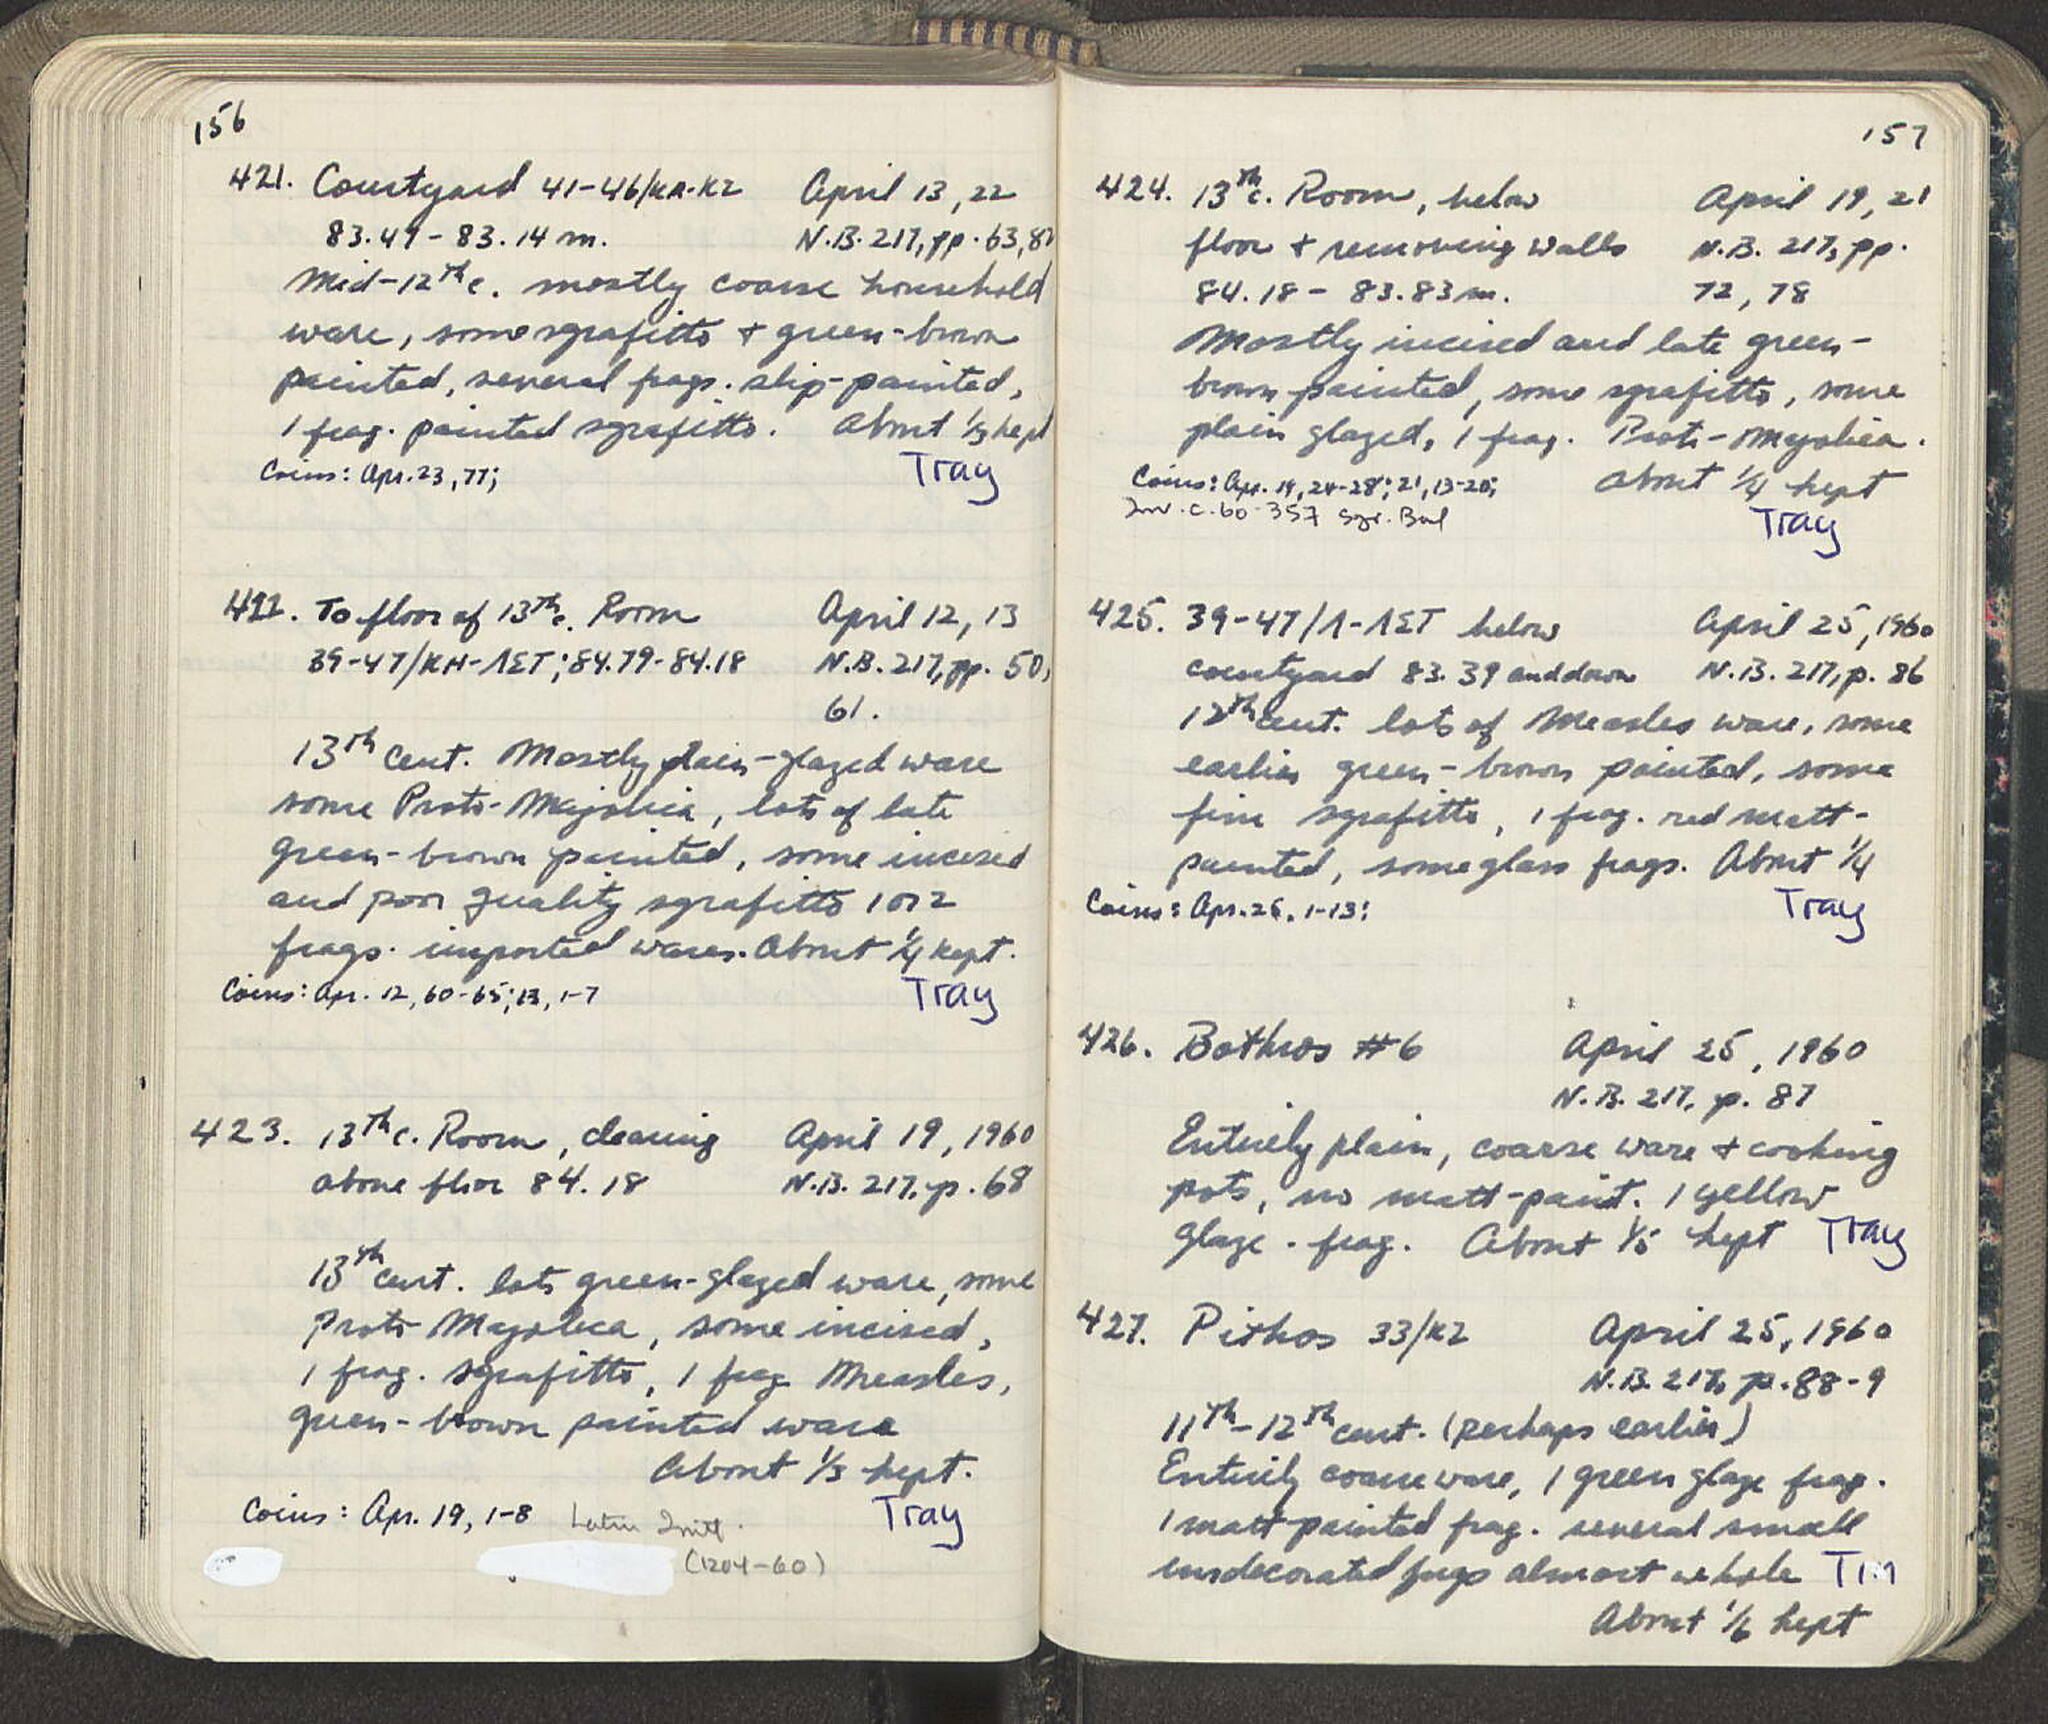 156
421. Courtyard 41-46/KA-KZ April 13, 22
83.49 - 83.14 m. N.B. 217, pp. 63, 82
Mid-12th c. mostly coarse household
ware, some sgrafitto + green-brown
painted, several frags. slip-painted,
1 frag. painted sgrafitto. About 1/3 kept
Coins: Apr. 23, 77; Tray
422. To floor of 13th c. Room April 12, 13
39-47/KH-ΛΣΤ; 84.79-84.18 N.B. 217, pp. 50,
61.
13th cent. Mostly plain-glazed ware
some Proto-Majolica, lots of late
green-brown painted, some incised
and poor quality sgrafitto 1 or 2
frags. imported wares. About 1/4 kept.
Coins: Apr. 12, 60-65; 13, 1-7 Tray
423. 13th c. Room, clearing April 19, 1960
above floor 84.18 N.B. 217, p. 68
13th cent. lots green-glazed ware, some
Proto Majolica, some incised,
1 frag. sgrafitto, 1 frag Measles,
green-brown painted ware
About 1/3 kept.
Coins: Apr. 19, 1-8 Latin Imit. Tray
(1204-60)
157
424. 13th c. Room, below April 19, 21
floor + removing walls N.B. 217, pp.
84.18 - 83.83 m. 72, 78
Mostly incised and late green-
brown painted, some sgrafitto, some
plain glazed, 1 frag. Proto-Majolica.
Coins: Apr. 19, 24-28; 21, 13-20; About 1/4 kept
Inv. C.60-357 Sgr. Bowl Tray
425. 39-47/Λ-ΛΣΤ below April 25, 1960
courtyard 83.39 and down N.B. 217, p. 86
12th cent. lots of Measles ware, some
earlier green-brown painted, some
fine sgrafitto, 1 frag. red matt-
painted, some glass frags. About 1/4
Coins: Apr. 26, 1-13: Tray
426. Bothros #6 April 25, 1960
N.B. 217, p. 87
Entirely plain, coarse ware + cooking
pots, no matt-paint. 1 yellow
glaze. frag. About 1/5 kept Tray
427. Pithos 33/KZ April 25, 1960
N.B. 217, p. 88-9
11th-12th cent. (perhaps earlier)
Entirely coarse ware, 1 green glaze frag.
1 matt painted frag. several small
undecorated jugs almost whole Tin
About 1/6 kept